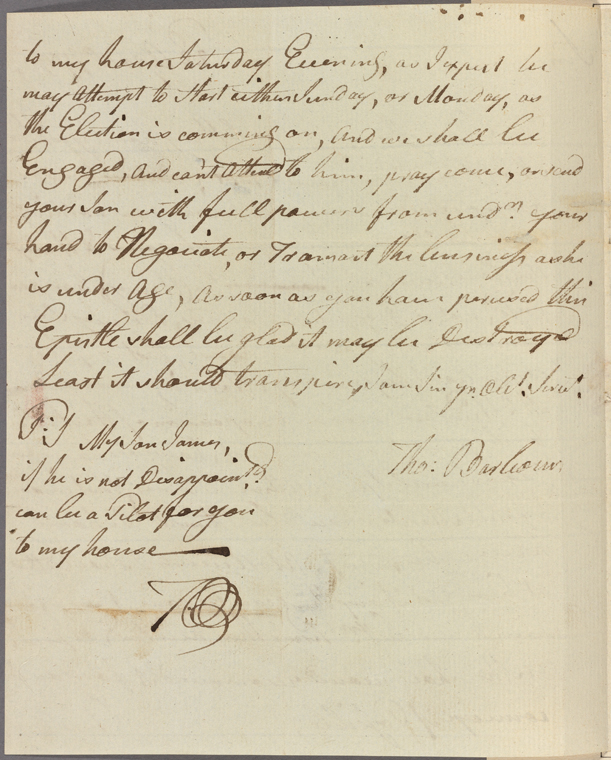 to my house Saturday Evening, as I expect he
may attempt to Start either Sunday, or Monday, as
the Election is comming on, and we shall be
Engaged, and can't attend to him, pray come, or send
your Son with full powers from undr. your
hand to Negociate, or Transact the business as he
is under Age, as soon as you have perused this
Epistle shall be glad it may be Destroyed
Least it should transpire, I am Sir yr. Obt. Servt.
Tho: Barbour
P:S My Son James,
if he is not Disappointd.
can be a Pilot for you
to my house
TB